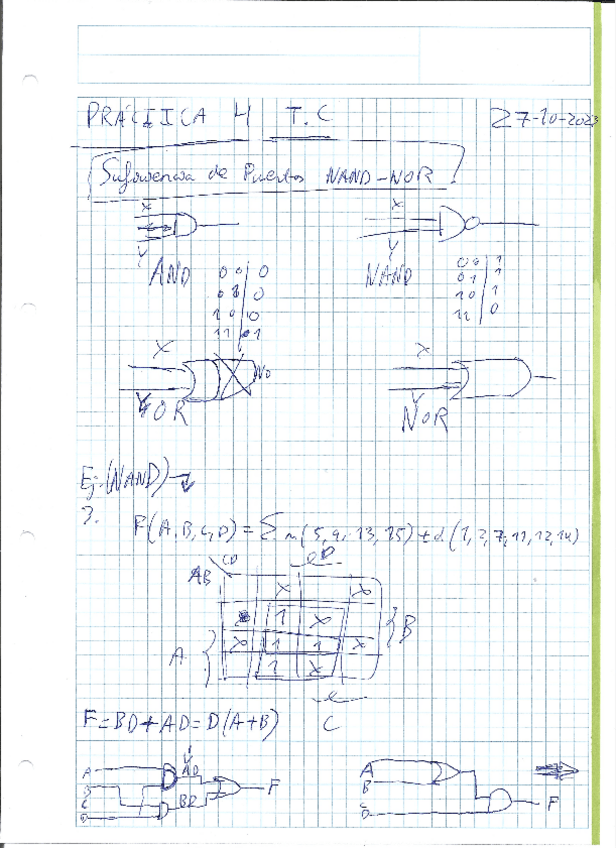 PRÁCTICA 4 T.C 27-10-2023
de Puertos NAND-NOR
X X
Y Y
AND NAND
0 0 | 0 0 0 | 1
0 1 | 0 0 1 | 1
1 0 | 0 1 0 | 1
1 1 | 1 1 1 | 0
X No X
Y OR Y NOR
Ej: (NAND)
F(A,B,C,D) = Σ m(5,9,13,15) + d(1,2,7,11,12,14)
CD D
AB
X X
1 X B
A X 1 1 X
1 X
C
F = BD + AD = D(A+B)
A AD A
B F B
C BD F
D